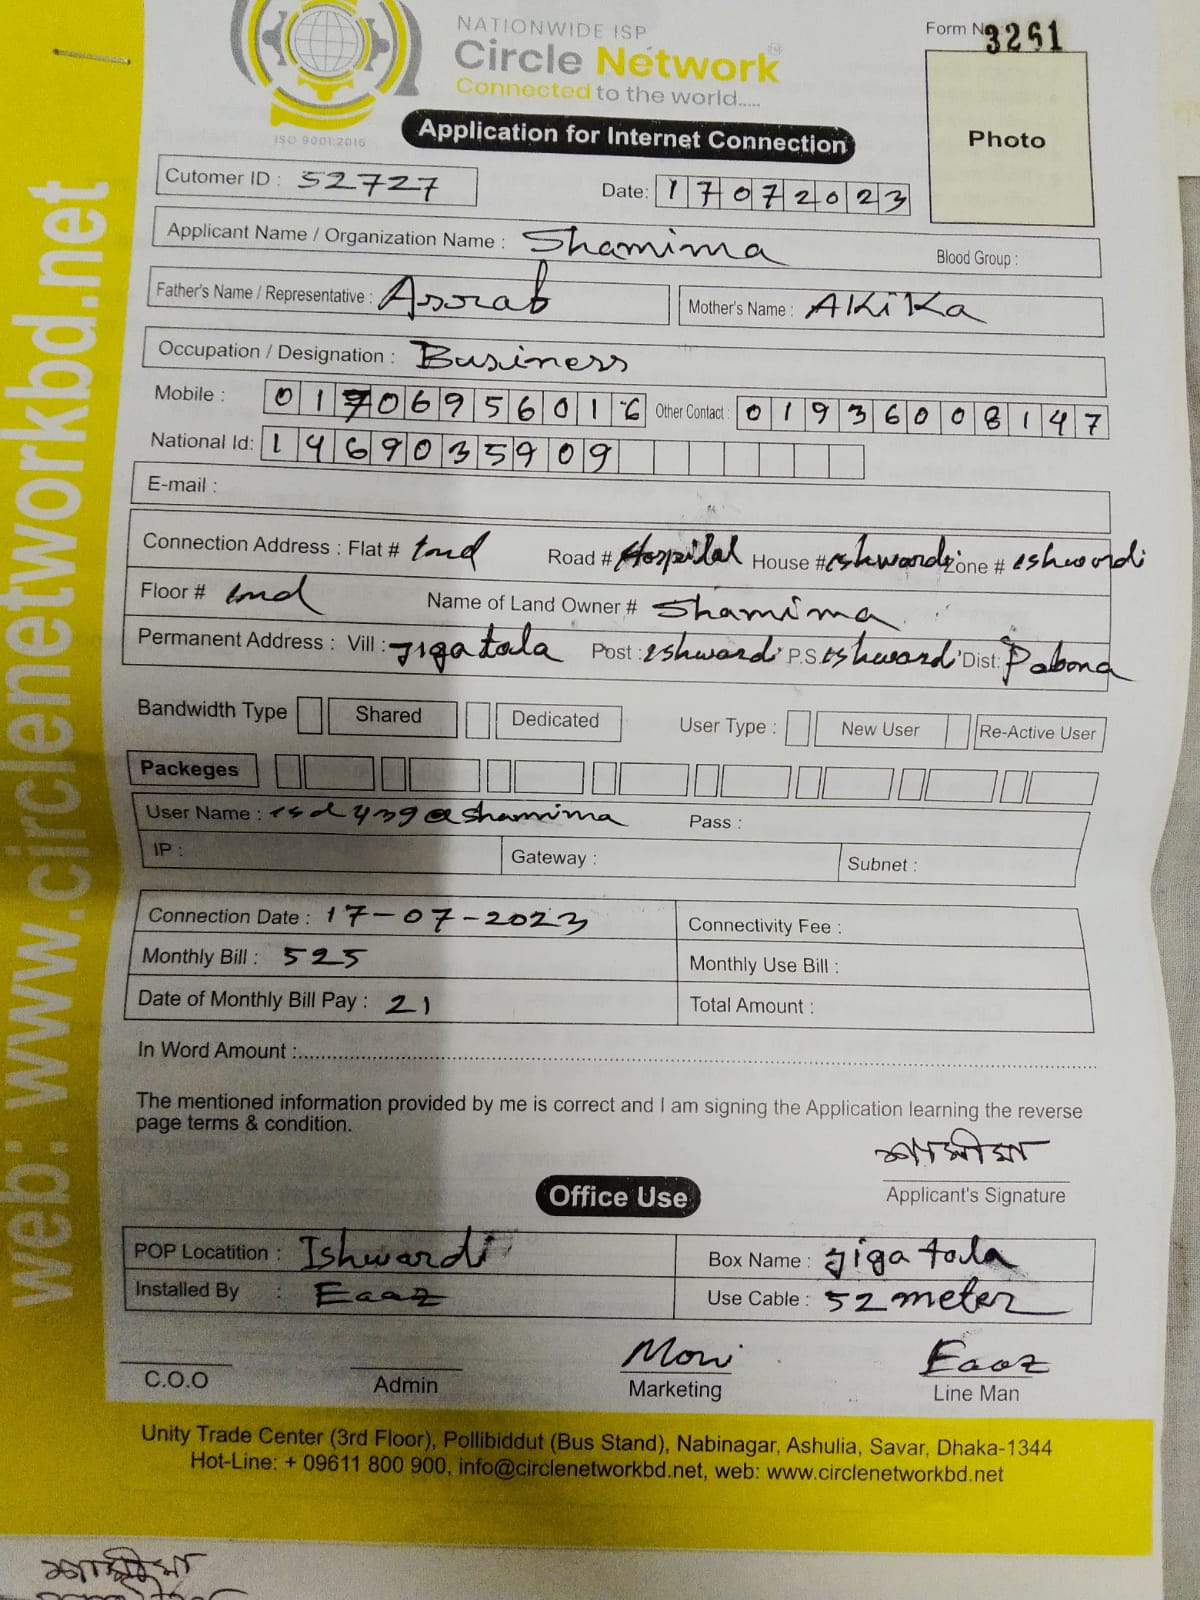 NATIONWIDE ISP
Circle Network TM
Connected to the world.....
ISO 9001:2015
Form N 3261
Photo
Application for Internet Connection
Cutomer ID : 52727
Date: 17072023
Applicant Name / Organization Name : Shamima Blood Group :
Father's Name / Representative : Asorab Mother's Name : AKiKa
Occupation / Designation : Business
Mobile : 01706956016 Other Contact : 01936008147
National Id: 1469035909
E-mail :
Connection Address : Flat # Road # Hospital House # eshwardi Zone # eshwardi
Floor # Name of Land Owner # Shamima
Permanent Address : Vill : Jigatola Post : eshwardi P.S. eshwardi Dist: Pabona
Bandwidth Type Shared Dedicated User Type : New User Re-Active User
Packeges
User Name : esd439@shamima Pass :
IP : Gateway : Subnet :
Connection Date : 17-07-2023 Connectivity Fee :
Monthly Bill : 525 Monthly Use Bill :
Date of Monthly Bill Pay : 21 Total Amount :
In Word Amount :
The mentioned information provided by me is correct and I am signing the Application learning the reverse
page terms & condition.
শামীমা
Applicant's Signature
Office Use
POP Locatition : Ishwardi Box Name : Jiga tola
Installed By : Eaaz Use Cable : 52 meter
Moni Eaaz
C.O.O Admin Marketing Line Man
Unity Trade Center (3rd Floor), Pollibiddut (Bus Stand), Nabinagar, Ashulia, Savar, Dhaka-1344
Hot-Line: + 09611 800 900, info@circlenetworkbd.net, web: www.circlenetworkbd.net
web: www.circlenetworkbd.net
শামীমা